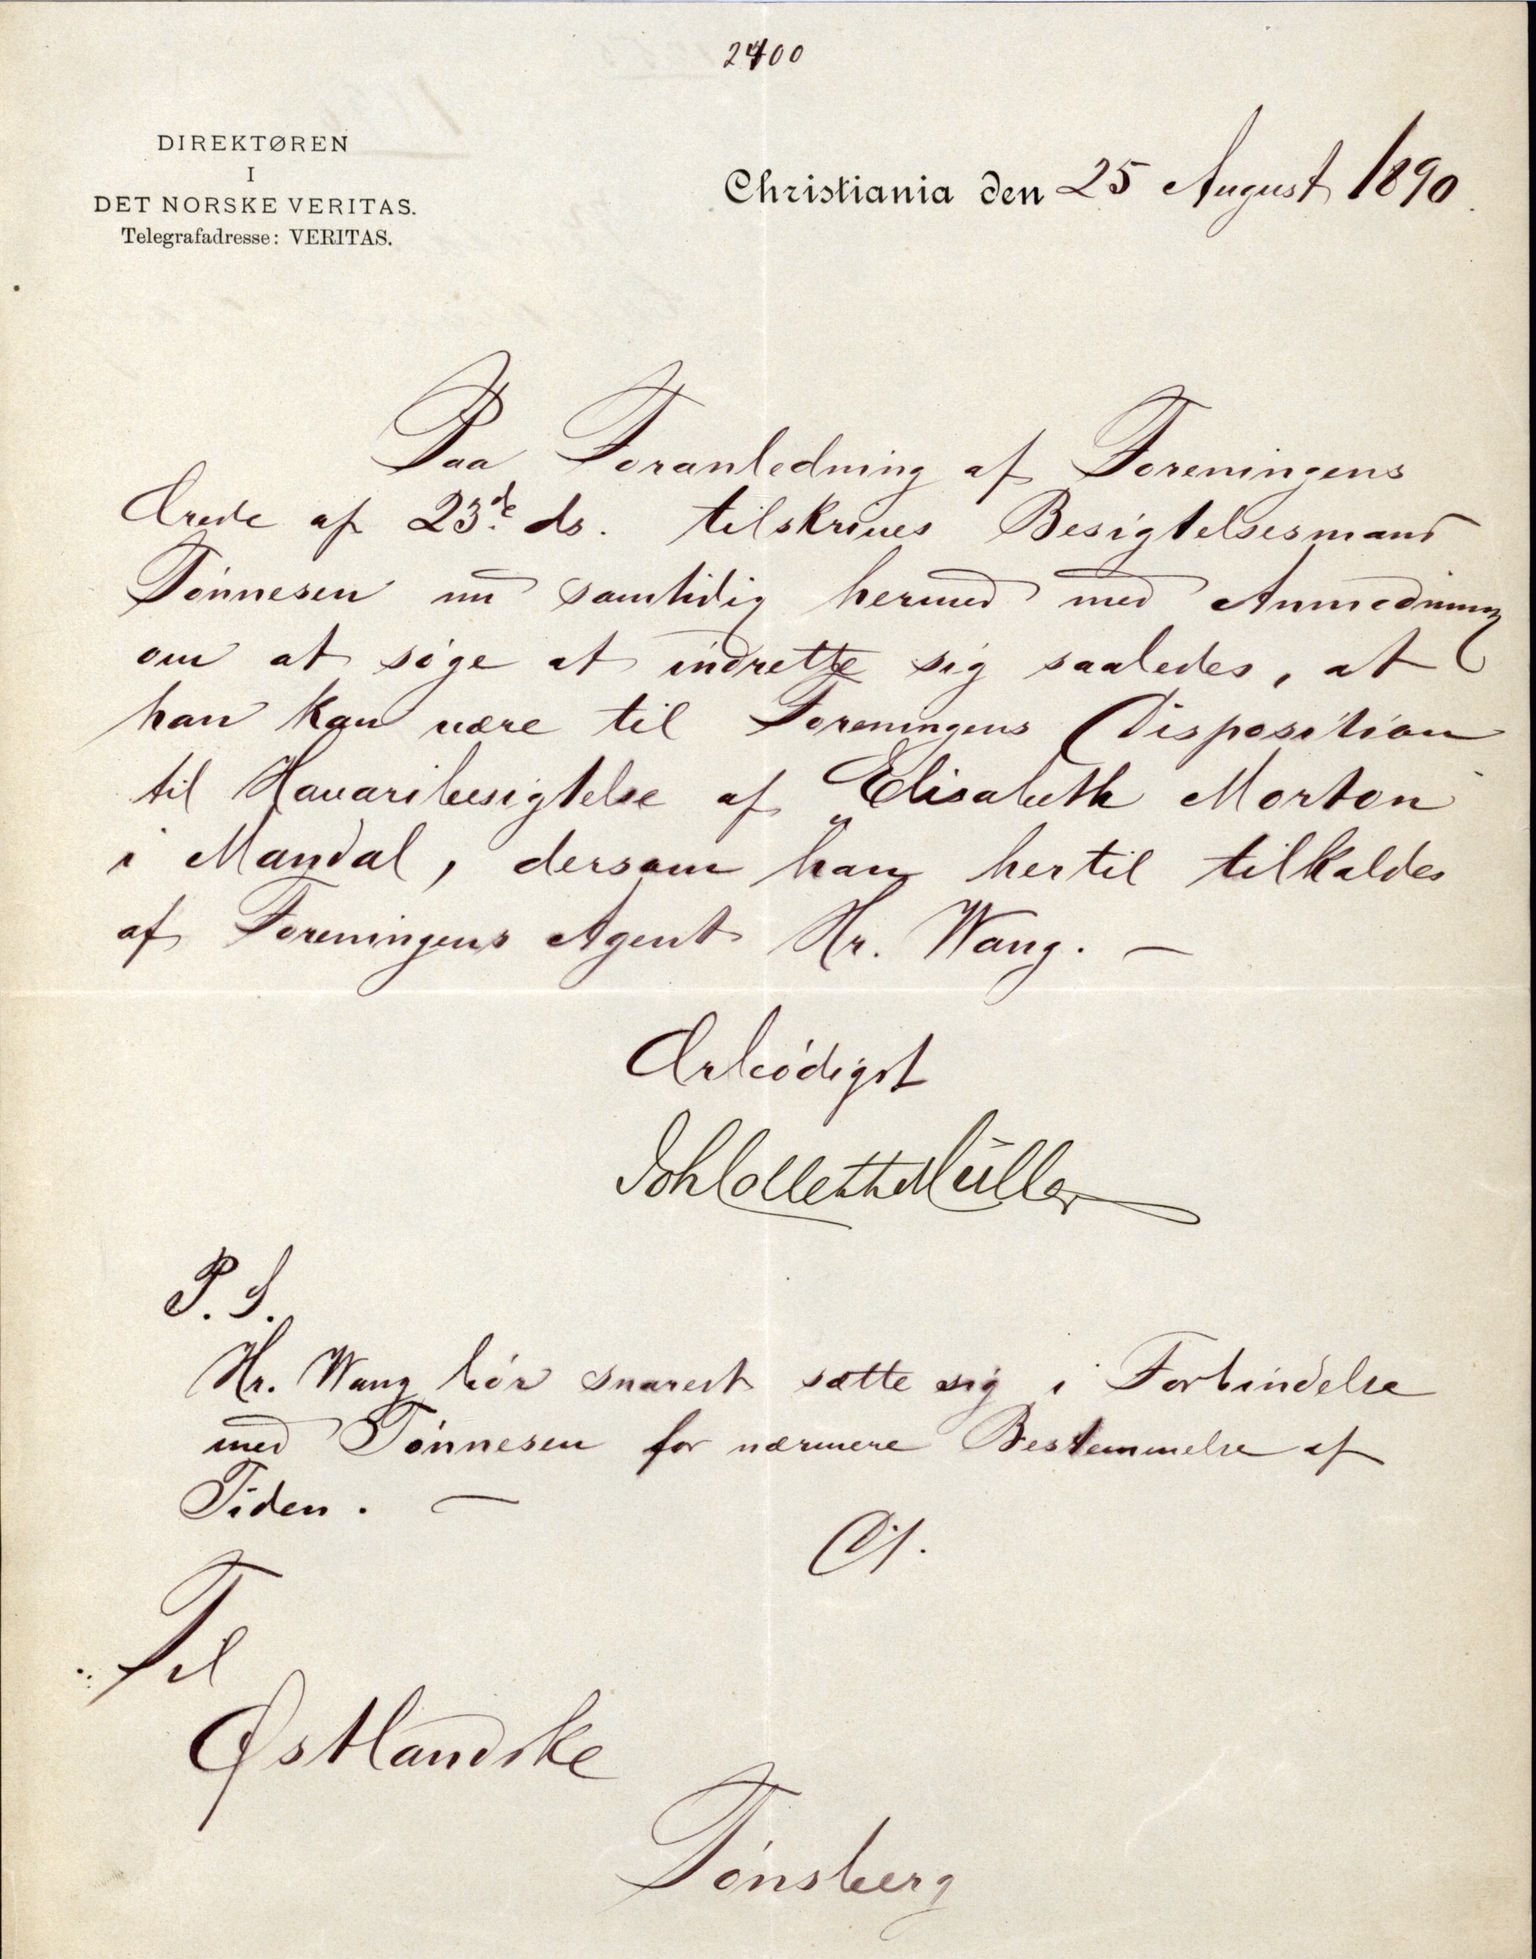 2400
DIREKTØREN
I
DET NORSKE VERITAS.
Telegrafadresse: VERITAS.
Christiania den 25 August 1890.
Paa Foranledning af Foreningens
Ærede af 23de ds. tilskrives Besigtelsesmand
Tønnesen nu samtidig hermed med Anmodning
om at søge at indrette sig saaledes, at
han kan være til Foreningens Disposition
til Havaribesigtelse af "Elisabeth Morton"
i Mandal, dersom han hertil tilkaldes
af Foreningens Agent Hr. Wang. —
Ærbødigst
Joh Collett Müller
P. S.
Hr. Wang bør snarest sætte sig i Forbindelse
med Tønnesen for nærmere Bestemmelse af
Tiden. —
Ds.
Til
Østlandske
Tønsberg